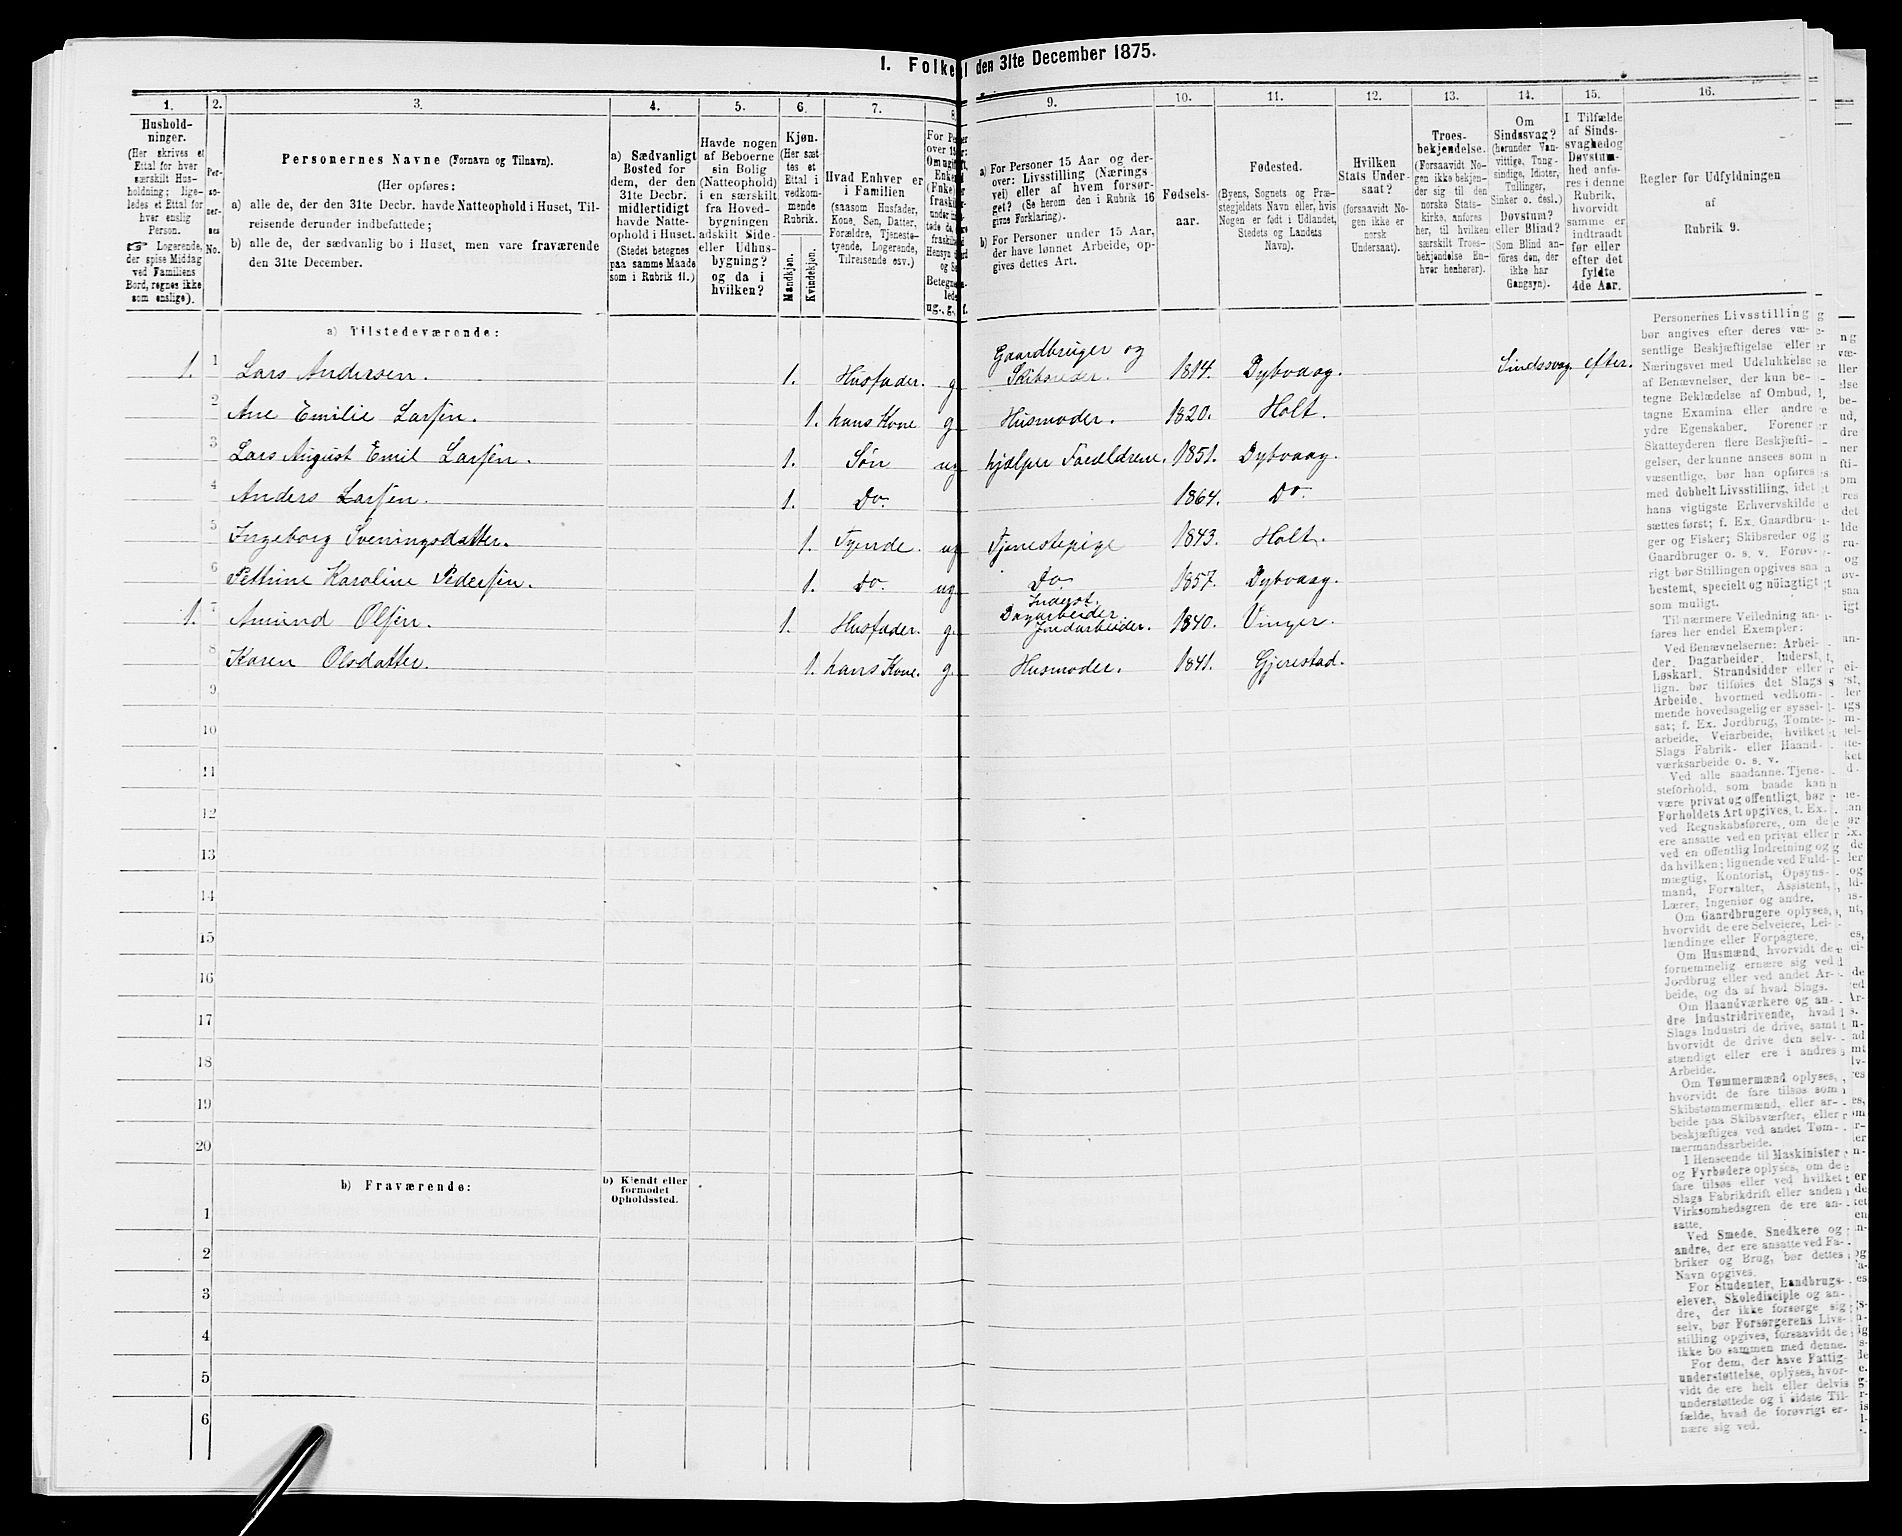 1. Folke
l den 31te December 1875.
1.
2.
3.
4.
5.
6.
7.
8
9.
10.
11.
12.
13.
14.
15.
16.
Hushold-
ninger.
(Her skrives et
Ettal for hver
særskilt Hus-
holdning; lige-
ledes et Ettal for
hver enslig
Person.
☞ Logerende,
der spise Middag
ved Familiens
Bord, regnes ikke
som enslige).
Per-
so-
ner-
nes
No.
Personernes Navne (Fornavn og Tilnavn).
(Her opføres:
a) alle de, der den 31te Decbr. havde Natteophold i Huset, Til-
reisende derunder indbefattede;
b) alle de, der sædvanlig bo i Huset, men vare fraværende
den 31te December.
a) Sædvanligt
Bosted for
dem, der den
31te Decbr.
midlertidigt
havde Natte-
ophold i Huset.
(Stedet betegnes
paa samme Maade
som i Rubrik 11.)
Havde nogen
af Beboerne
sin Bolig
(Natteophold)
i en særskilt
fra Hoved-
bygningen
adskilt Side-
eller Udhus-
bygning?
og da i
hvilken?
Kjøn.
(Her sæt-
tes et
Ettal i
vedkom-
mende
Rubrik.
Mandkjøn.
Kvindekjøn.
Hvad Enhver er
i Familien
(saasom Husfader,
Kone, Søn, Datter,
Forældre, Tjeneste-
tyende, Logerende,
Tilreisende osv.)
a) For Personer 15 Aar og der-
over: Livsstilling (Nærings
vei) eller af hvem forsør-
get? (Se herom den i Rubrik 16
givne Forklaring).
b) For Personer under 15 Aar,
der have lønnet Arbeide, op-
gives dettes Art.
Fødsels-
aar.
Fødested.
(Byens, Sognets og Præ-
stegjeldets Navn eller, hvis
Nogen er født i Udlandet,
Stedets og Landets
Navn).
Hvilken
Stats Under-
saat?
(forsaavidt No-
gen ikke er
norsk
Undersaat).
Troes-
bekjendelse.
(Forsaavidt No-
gen ikke bekjen-
der sig til den
norske Stats-
kirke, anføres
her, til hvilken
særskilt Troes-
bekjendelse En-
hver henhører).
Om
Sindssvag?
(herunder Van-
vittige, Tung-
sindige, Idioter,
Tullinger,
Sinker o. desl.)
Døvstum?
eller Blind?
(Som Blind an-
føres den, der
ikke har
Gangsyn).
I Tilfælde
af Sinds-
svaghed og
Døvstum-
hed anfø-
res i denne
Rubrik,
hvorvidt
samme er
indtraadt
før eller
efter det
fyldte
4de Aar.
Regler for Udfyldningen
af
Rubrik 9.
a) Tilstedeværende:
1. 1 Lars Andersen. 1. Husfader. g Gaardbruger og
Skibsreder. 1814. Dybvaag. Sindssvag efter.
2 Ane Emilie Larsen. 1. hans Kone g Husmoder. 1820. Holt.
3 Lars August Emil Larsen. 1. Søn ug hjælper Forældrene. 1851. Dybvaag.
4 Anders Larsen. 1. Do. 1864. Do.
5 Ingeborg Sveningsdatter. 1. Tyende. ug Tjenestepige 1843. Holt.
6 Pettrine Karoline Pedersen. 1. Do. ug Do 1857. Dybvaag.
1. 7 Amund Olsen. 1. Husfader. g. Inderst.
Dagarbeider
Jordarbeider. 1840. Vinger.
8 Karen Olsdatter. 1. hans Kone. g. Husmoder. 1841. Gjerestad.
9
10
11
12
13
14
15
16
17
18
19
20
b) Fraværende:
b) Kjendt eller
formodet
Opholdssted.
1
2
3
4
5
6
Personernes Livsstilling
bør angives efter deres væ-
sentlige Beskjæftigelse eller
Næringsvei med Udelukkelse
af Benævnelser, der kun be-
tegne Beklædelse af Ombud,
tagne Examina eller andre
ydre Egenskaber. Forener
Skatteyderen flere Beskjæfti-
gelser, der kunne ansees som
væsentlige, bør han opføres
med dobbelt Livsstilling, idet
hans vigtigste Erhvervskilde
sættes først; f. Ex. Gaardbru-
ger og Fisker; Skibsreder og
Gaardbruger o. s. v. Forøv-
rigt bør Stillingen opgives saa
bestemt, specielt og nöiagtigt
som muligt.
Til nærmere Veiledning an-
føres her endel Exempler:
Ved Benævnelserne: Arbei-
der, Dagarbeider, Inderst,
Løskarl, Strandsidder eller
lign. bør tilføies det Slags
Arbeide, hvormed vedkom-
mende hovedsagelig er syssel-
sat; f. Ex. Jordbrug, Tomte-
arbeide, Veiarbeide, hvilket
Slags Fabrik- eller Haand-
værksarbeide o. s. v.
Ved alle saadanne Tjene-
steforhold, som baade kan
være privat og offentligt, bør
Forholdets Art opgives, t. Ex.
ved Regnskabsførere, om de
ere ansatte ved en privat eller
ved en offentlig Indretning og
da hvilken; lignende ved Fuld-
mægtig, Kontorist, Opsyns-
mand, Forvalter, Assistent,
Lærer, Ingeniør og andre.
Om Gaardbrugere oplyses,
hvorvidt de ere Selveiere, Lei-
lændinge eller Forpagtere.
Om Husmænd, hvorvidt de
fornemmelig ernære sig ved
Jordbrug eller ved andet Ar-
beide, og da af hvad Slags.
Om Haandværkere og an-
dre Industridrivende, hvad
Slags Industri de drive, samt
hvorvidt de drive den selv-
stændigt eller ere i andres
Arbeide.
Om Tømmermænd oplyses,
hvorvidt de fare tilsøs som
Skibstømmermænd, eller ar-
beide paa Skibsværfter, eller
beskjæftiges ved andet Tøm-
mermandsarbeide.
I Henseende til Maskinister
og Fyrbødere oplyses, om de
fare tilsøs eller ved hvilket
Slags Fabrikdrift eller anden
Virksomhedsgren de ere an-
satte.
Ved Smede, Snedkere og
andre, der ere ansatte ved Fa-
briker og Brug, bør dettes
Navn opgives.
For Studenter, Landbrugs-
elever, Skoledisciple og an-
dre, der ikke forsørge sig
selv, bør Forsørgerens Livs-
stilling opgives, forsaavidt de
ikke bo sammen med denne.
For dem, der have Fattig-
understøttelse, oplyses, hvor-
vidt de ere helt eller delvis
understøttede og i sidste Til-
fælde, hvad de forøvrigt er-
nære sig ved.